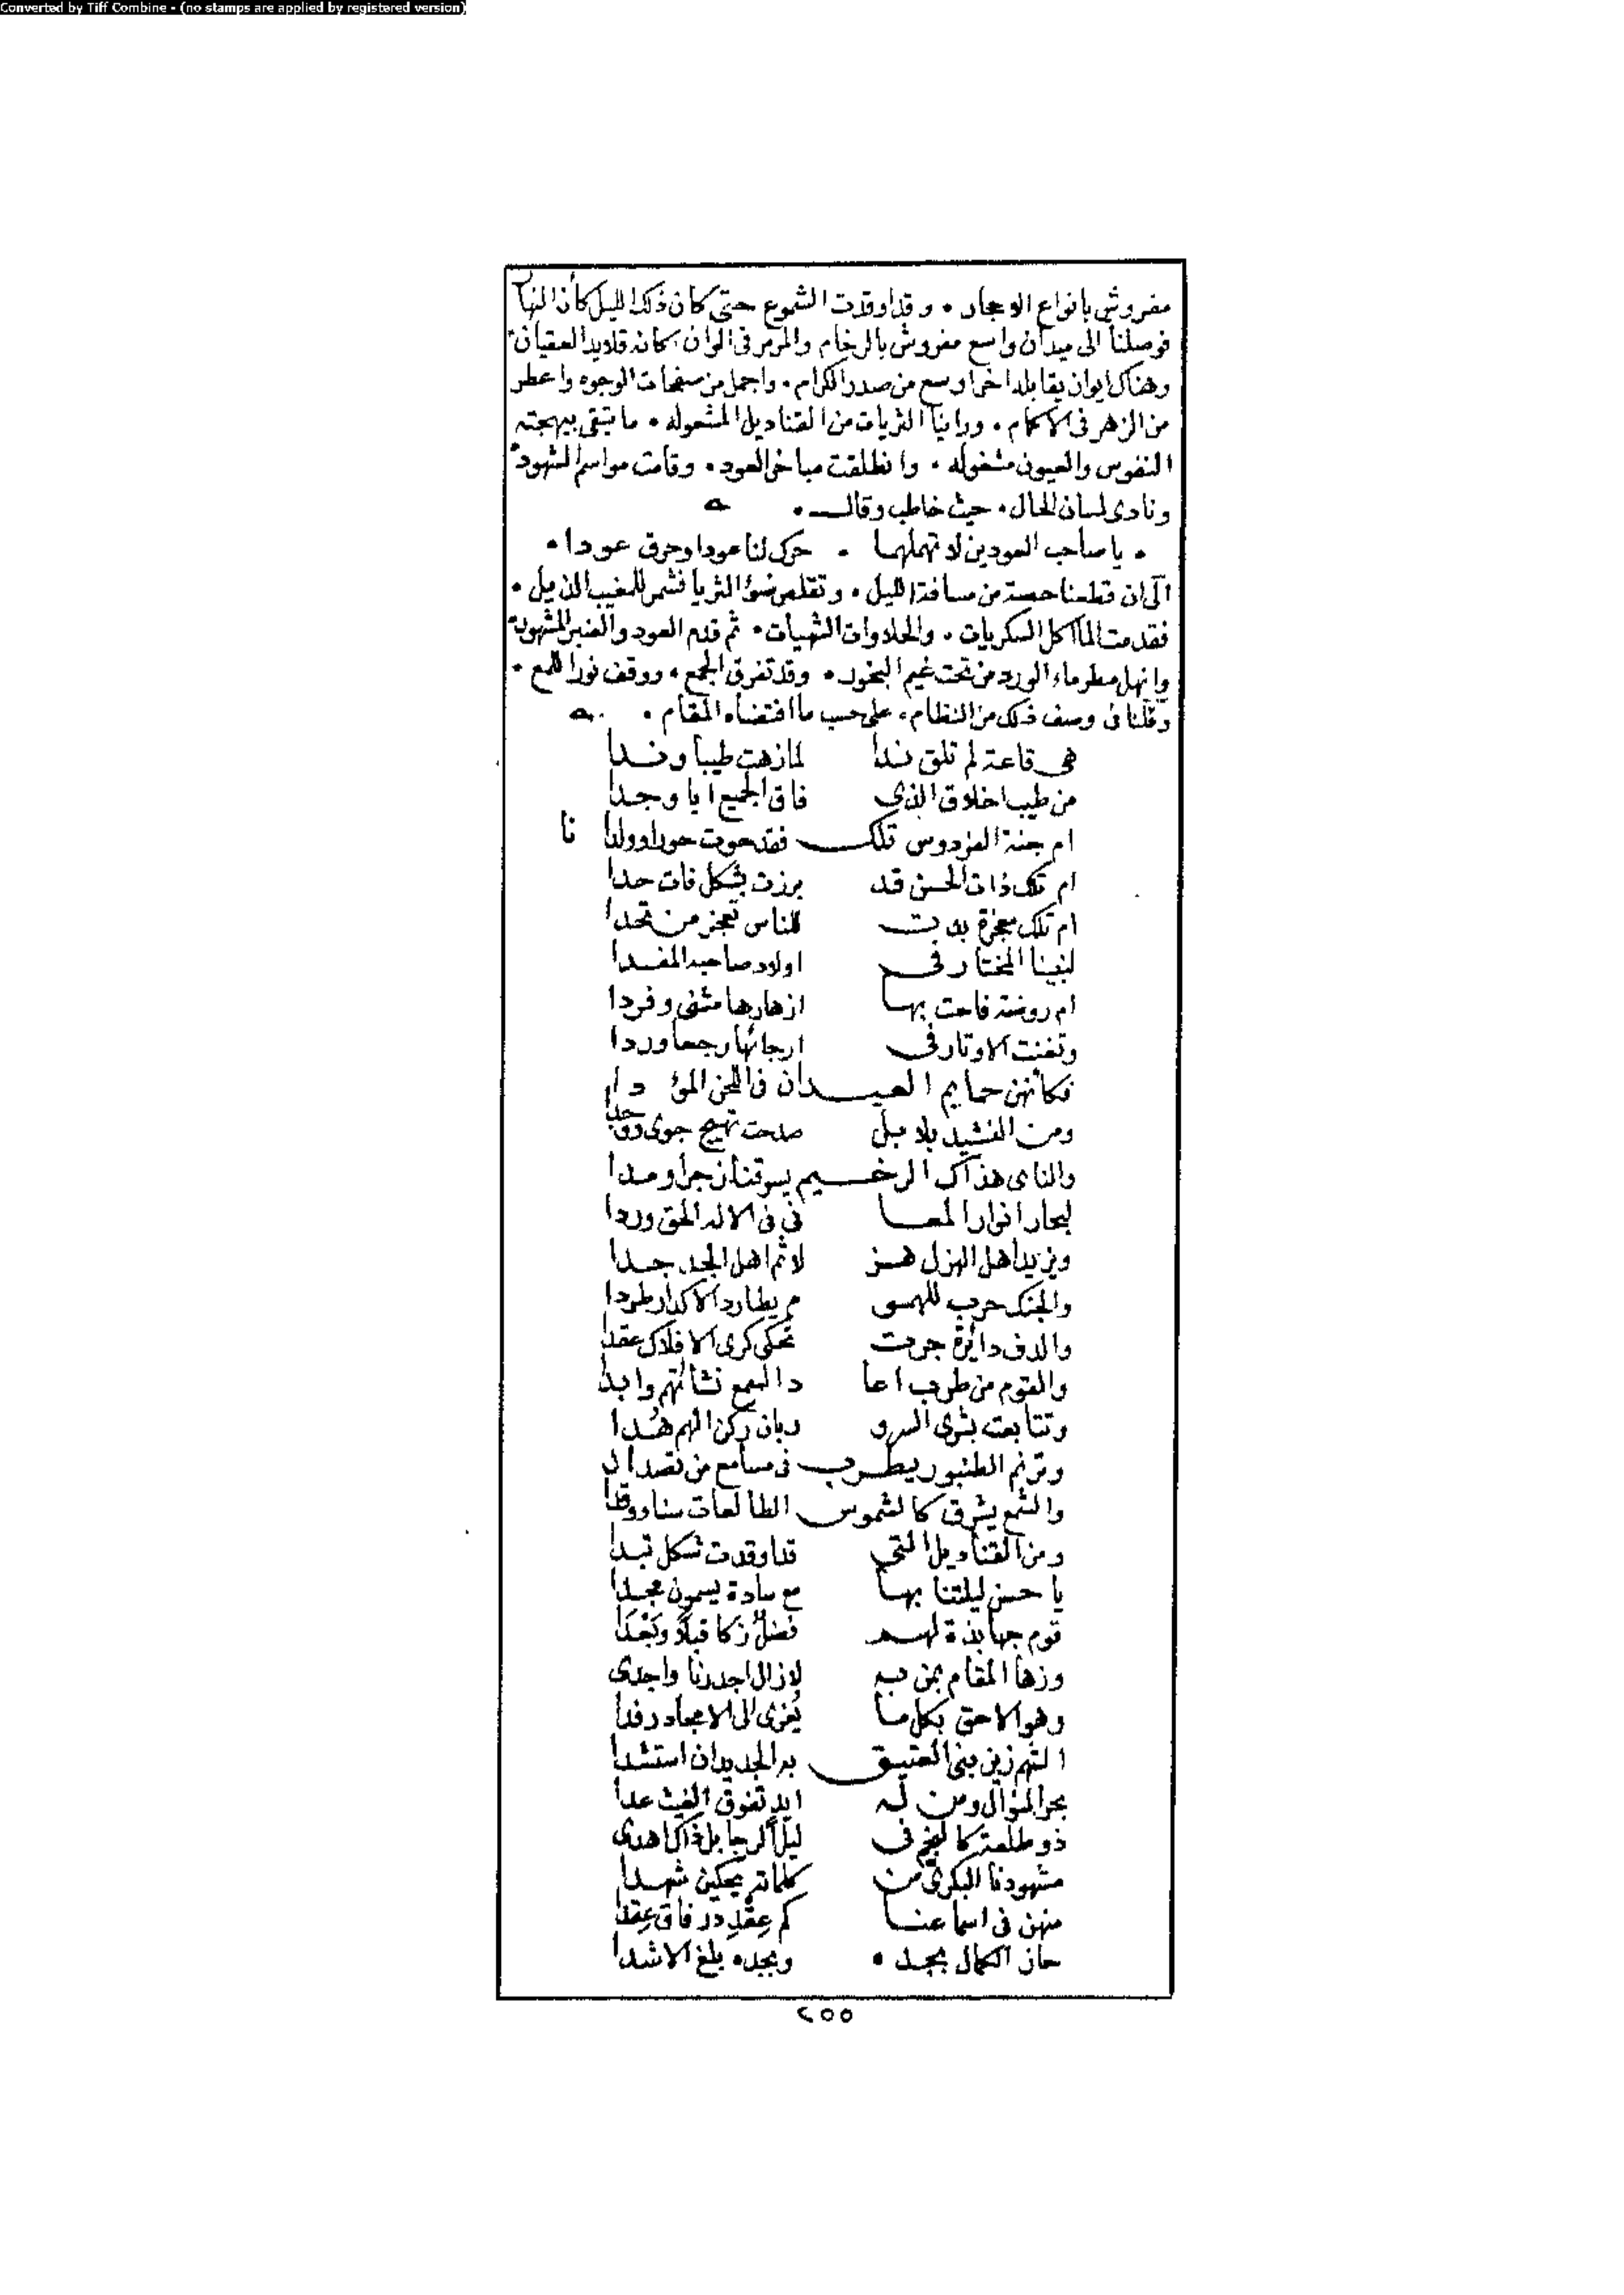 Converted by Tiff Combine - (no stamps are applied by registered version)
مفروش بانواع الاحجار . وقد اوقدت الشموع حتى كان ذلك الليل كأن النها
فوصلنا الى ميدان واسع مفروش بالرخام والمرمر فى الوان كانه قلايد العقيان
وهناك ايوان يقابله اخر اوسع من صدر الكرام . واجمل من صفحات الوجوه واعطر
من الزهر فى الاكمام . وراينا الثريات من القناديل المشعوله . ما تبقى ببهجته
النفوس والعيون مشغوله . وانطلقت مباخر العود . وقامت مواسم الشهود
ونادى لسان الحال . حيث خاطب وقال .
. يا صاحب العودين لا تهملهما . حرك لنا عودا وحرق عودا .
الى ان قطعنا حصة من مسافة الليل . وتقلص ضوء الثريا فشمر للمغيب الذيل .
فقدمت المآكل السكريات . والحلاوات الشهيات . ثم قدم العود والعنبر المشهود
وانهل مطر ماء الورد من تحت غيم البخور . وقد تفرق الجمع . ووقف نور اللمع .
وقلنا فى وصف ذلك من النظام . على حسب ما اقتضاه المقام .
هى قاعة لم تلق ندا لما زهت طيبا وندا
من طيب اخلاق الذى فاق الجميع ابا وجدا
ام جنة الفردوس تلك فقد حوت حورا وولدا نا
ام تلك ذات الحسن قد برزت بشكل فات حدا
ام تلك معجزة بدت للناس تعجز من تحدا
لنبينا المختار فى اولاد صاحبه المفدا
ام روضة فاحت بها ازهارها مثنى وفردا
وتغنت الاوتار فى ارجائها رجعا وردا
فكأنهن حمايم العيدان فى اللحن المؤدا
ومن النشيد بلابل صدحت تهيج جوى ووجدا
والناى هذاك الرخيم يسوقنا زجرا وحدا
لبحار انوار المعا نى فى الاله الحق وردا
ويزيد اهل الهزل هز لا ثم اهل الجد جدا
والجنك حرب للهمو م يطارد الاكدار طردا
والدف دائرة جرت تحكى كرى الافلاك عقدا
والقوم من طرب اعا د السمع نشاتهم وابدا
وتتابعت بشرى السرو ر بان ركن الهم هُدا
وترنم الطنبور يطرب فى مسامع من تصدا ل
والشمع يشرق كالشموس الطالعات سنا ووقدا
ومن القناديل التى قد اوقدت شكل تبدا
يا حسن ليلتنا بها مع سادة يسمون مجدا
قوم جهابذة لهم فضل زكا قبلا وبَعْدا
وزها المقام بمن به لا زال اجدرنا واجدى
وهو الاحق بكل ما يُعزى الى الامجاد رفدا
الشهم زين بنى العتيق به الجديدان استشدا
بحر النوال ومن له ايد تفوق الغيث عدا
ذو طلعة كالنجم فى ليل الرجا بل ذاك اهدى
مشهودنا البكرى من كلماته يحكين شهدا
منهن فى اسماعنا كم عِقْدِ در فاق عِقدا
حاز الكمال بجده . وبجده بلغ الاشدا
٢٥٥